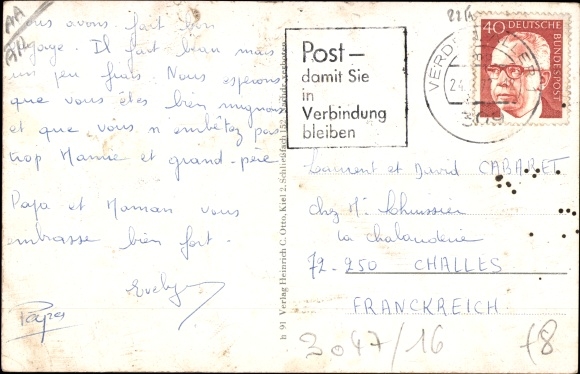 AA
Nous avons fait bon
voyage. Il fait beau mais
un peu frais Nous espérons
que vous êtes bien mignons
et que vous n'embêtez pas
trop Mamie et grand-père
Papa et Maman vous
embrasse bien fort.
Evelyne
Papa
h 91 Verlag Heinrich C. Otto, Kiel 2, Schließfach 152
Post –
damit Sie
in
Verbindung
bleiben
VERDEN ALLER
309
40
DEUTSCHE
BUNDESPOST
Laurent et David CABARET
chez Mr
la chalanderie
72-250 CHALLES
FRANCKREICH
3047/16
f8